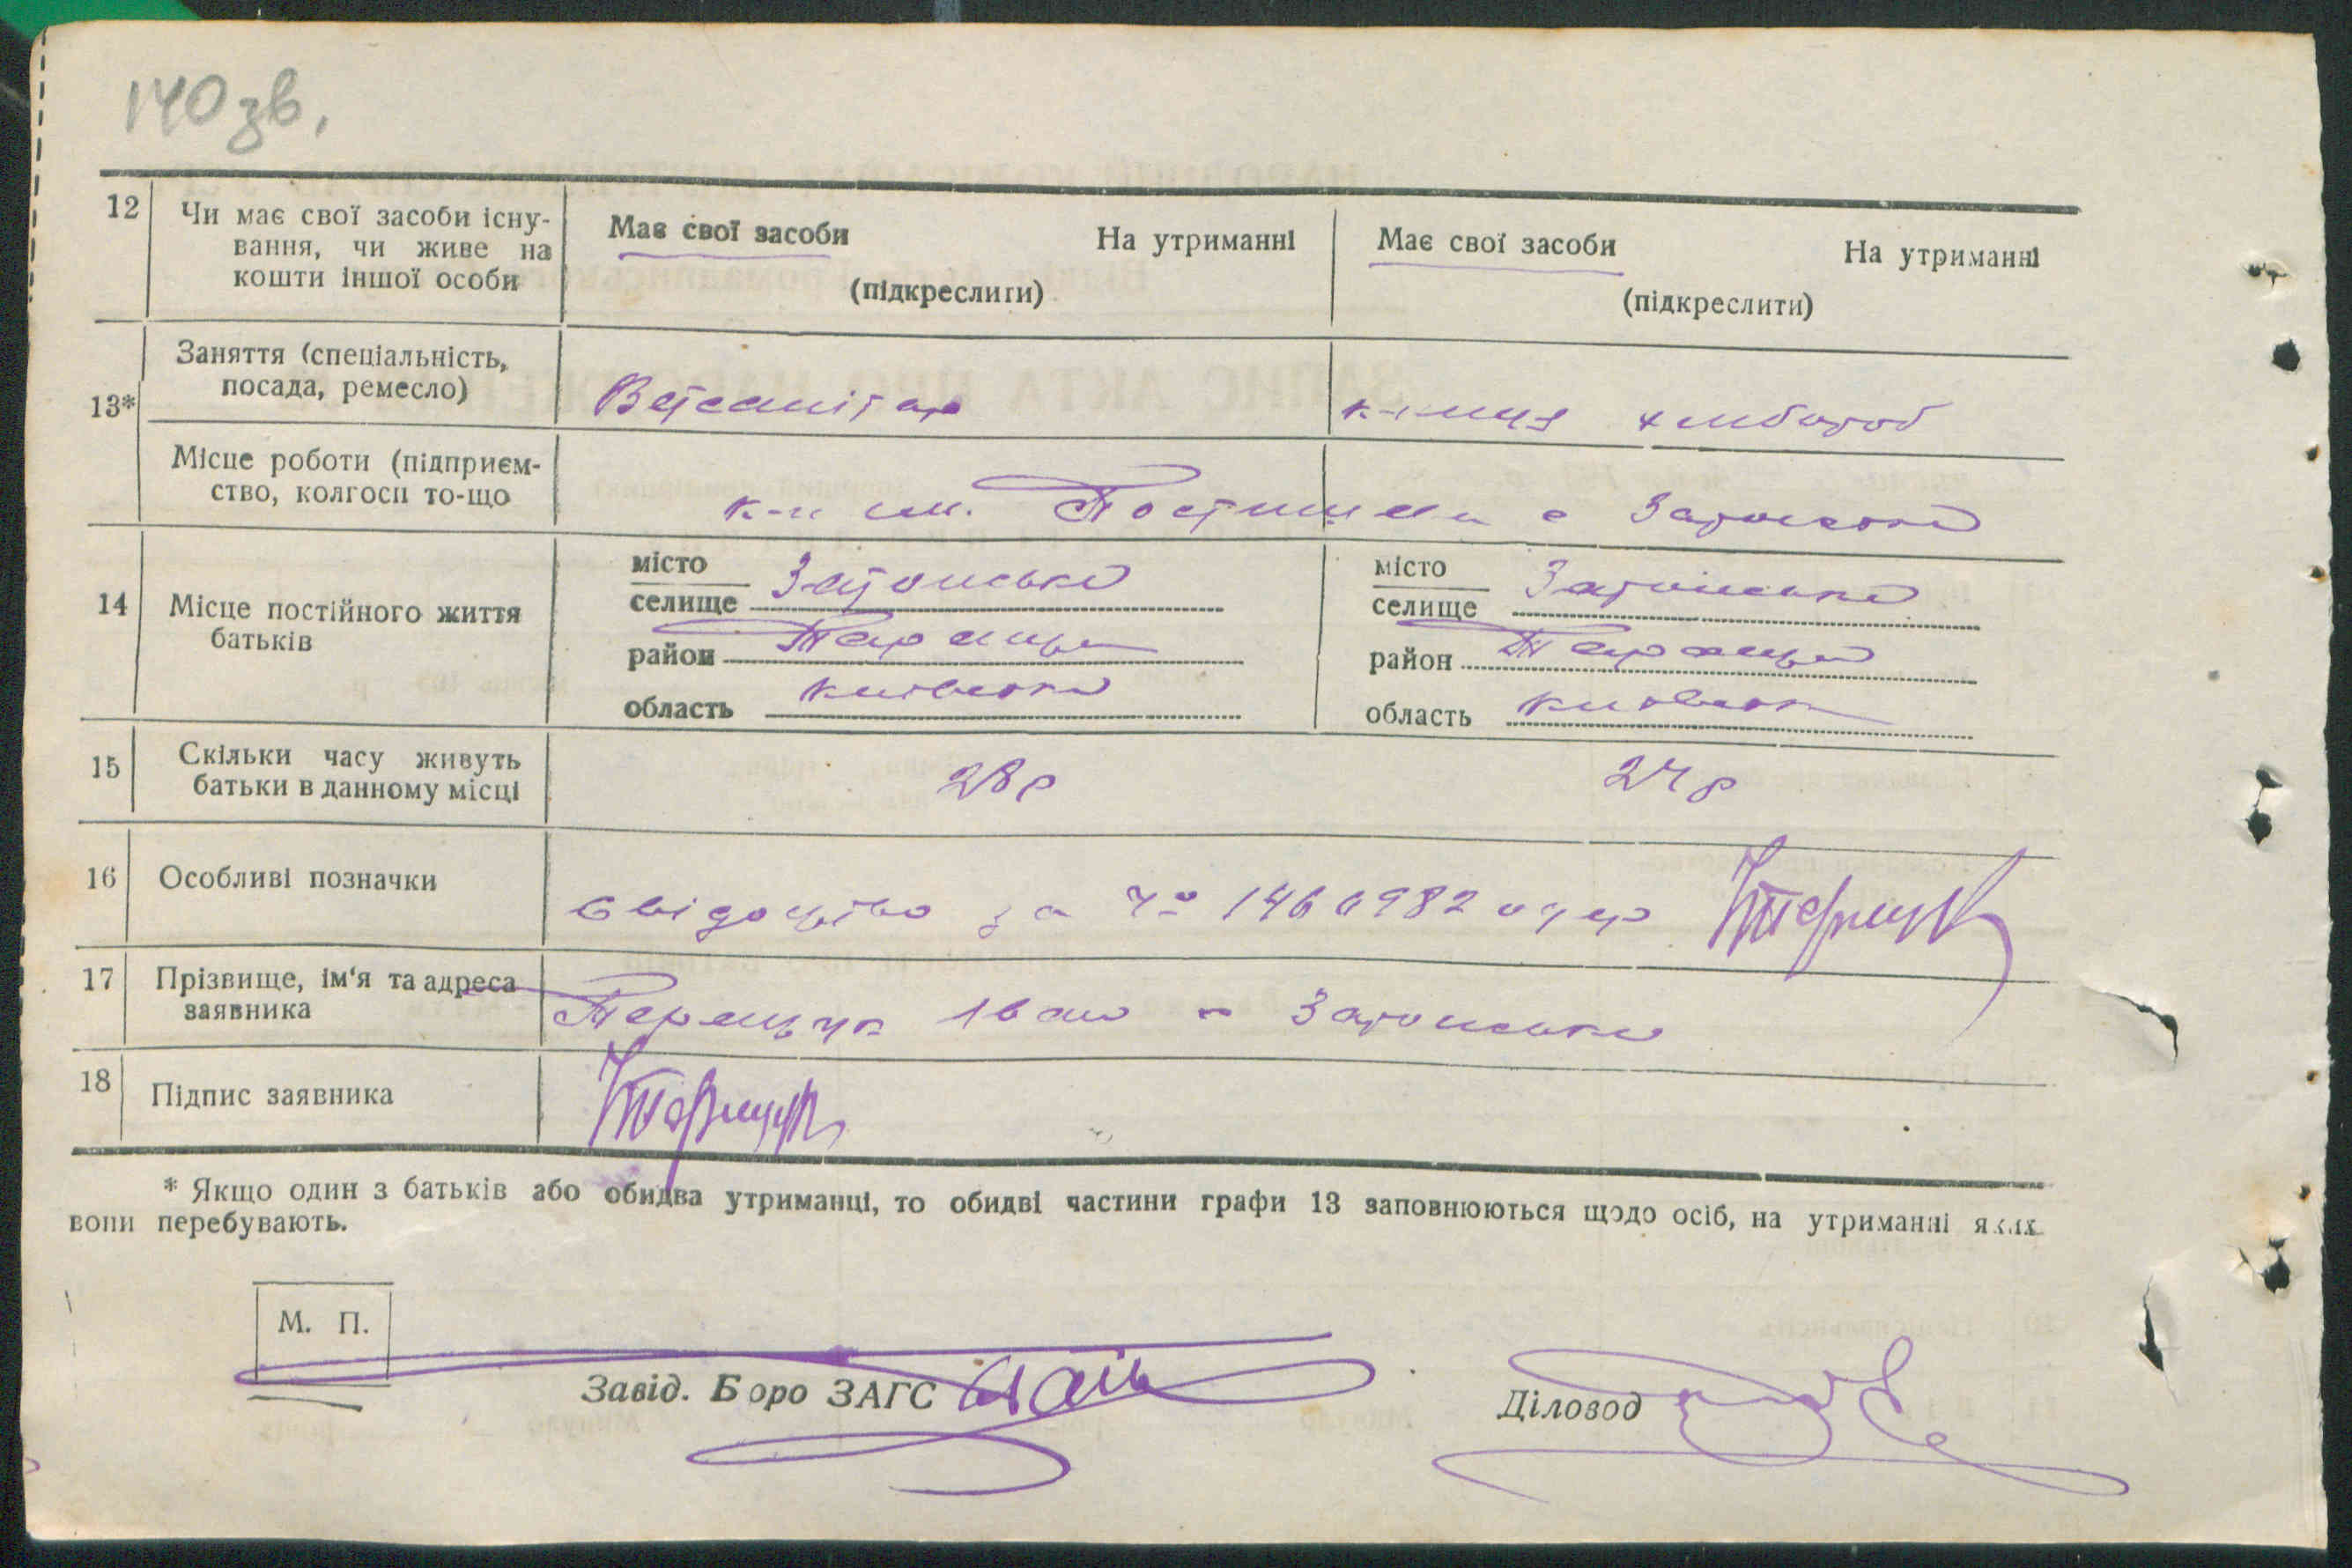 140 зв.
12 Чи має свої засоби існу-
вання, чи живе на
кошти іншої особи
Має свої засоби На утриманні
(підкреслити)
Має свої засоби На утриманні
(підкреслити)
13* Заняття (спеціальність,
посада, ремесло)
Ветсанітар
хлібороб
Місце роботи (підприєм-
ство, колгосп то-що
к-п им. Постишева
14 Місце постійного життя
батьків
місто
селище
район Тараща
область Київська
місто
селище
район Тараща
область Київська
15 Скільки часу живуть
батьки в данному місці
28 р
24 р
16 Особливі позначки
Свідоцтво за № 1460982 одер
17 Прізвище, ім'я та адреса
заявника
Терещук Іван
18 Підпис заявника
* Якщо один з батьків або обидва утриманці, то обидві частини графи 13 заповнюються щодо осіб, на утриманні яких
вони перебувають.
М. П.
Завід. Бюро ЗАГС
Діловод